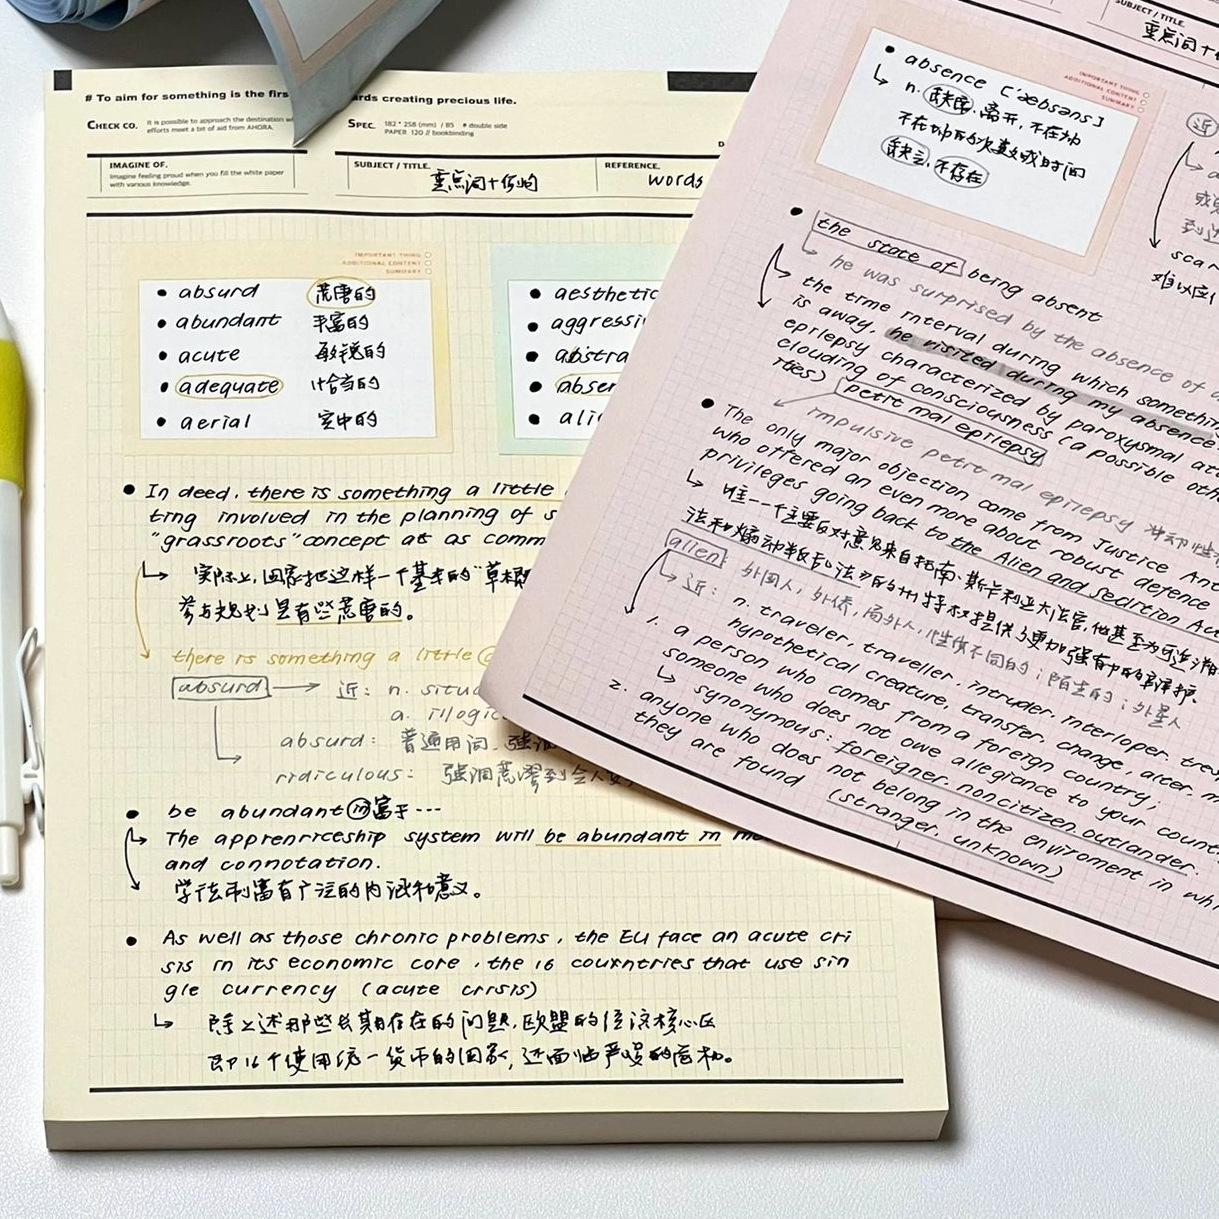 # To aim for something is the firs
rds creating precious life.
CHECK CO.
It is possible to approach the destination w
efforts meet a bit of aid from AHORA.
SPEC.
182 * 258 (mm) / B5 # double side
PAPER 120 // bookbinding
IMAGINE OF.
Imagine feeling proud when you fill the white paper
with various knowledge.
SUBJECT / TITLE.
重点词+例句
REFERENCE.
words
IMPORTANT THING
ADDITIONAL CONTENT
SUMMARY
absurd 荒唐的
abundant 丰富的
acute 敏锐的
adequate 恰当的
aerial 空中的
aesthetic
aggressi
abstra
absen
ali
In deed, there is something a little
ting involved in the planning of s
"grassroots" concept at as comm
实际上,国家把这样一个基本的"草根
参与规划是有些荒唐的。
there is something a little
absurd → 近: n. situa
a. illogic
absurd: 普通用词,强调
ridiculous: 强调荒谬到令人
be abundant in 富于…
The apprenticeship system will be abundant in me
and connotation.
学徒制富有广泛的内涵和意义。
As well as those chronic problems, the EU face an acute cri
sis in its economic core, the 16 countries that use sin
gle currency (acute crisis)
除上述那些长期存在的问题,欧盟的经济核心区
即16个使用统一货币的国家,还面临严峻的危机。
SUBJECT / TITLE.
重点词+
IMPORTANT THING
ADDITIONAL CONTENT
SUMMARY
absence ['æbsəns]
n. 缺席,离开,不在场
不在场的次数或时间
缺乏,不存在
近
或
到达
scar
难以应
the state of being absent
he was surprised by the absence of a
the time interval during which somethin
is away, he visited during my absence
epilepsy characterized by paroxysmal att
clouding of consciousness (a possible oth
ties) petit mal epilepsy
impulsive petit mal epilepsy 冲动性
The only major objection come from Justice Ant
who offered an even more about robust defence
privileges going back to the Alien and Sedition Act
唯一一个主要反对意见来自托南·斯卡利亚大法官,他甚至为可追溯
法和煽动叛乱法》的州特权提供了更加强有力的辩护.
alien: 外国人,外侨,局外人,性质不同的;陌生的;外星人
近: n. traveler, traveller, intruder, interloper, tres
hypothetical creature, transfer, change, alter, m
1. a person who comes from a foreign country;
someone who does not owe allegiance to your count
synonymous: foreigner, noncitizen, outlander.
2. anyone who does not belong in the enviroment in whi
they are found (stranger, unknown)